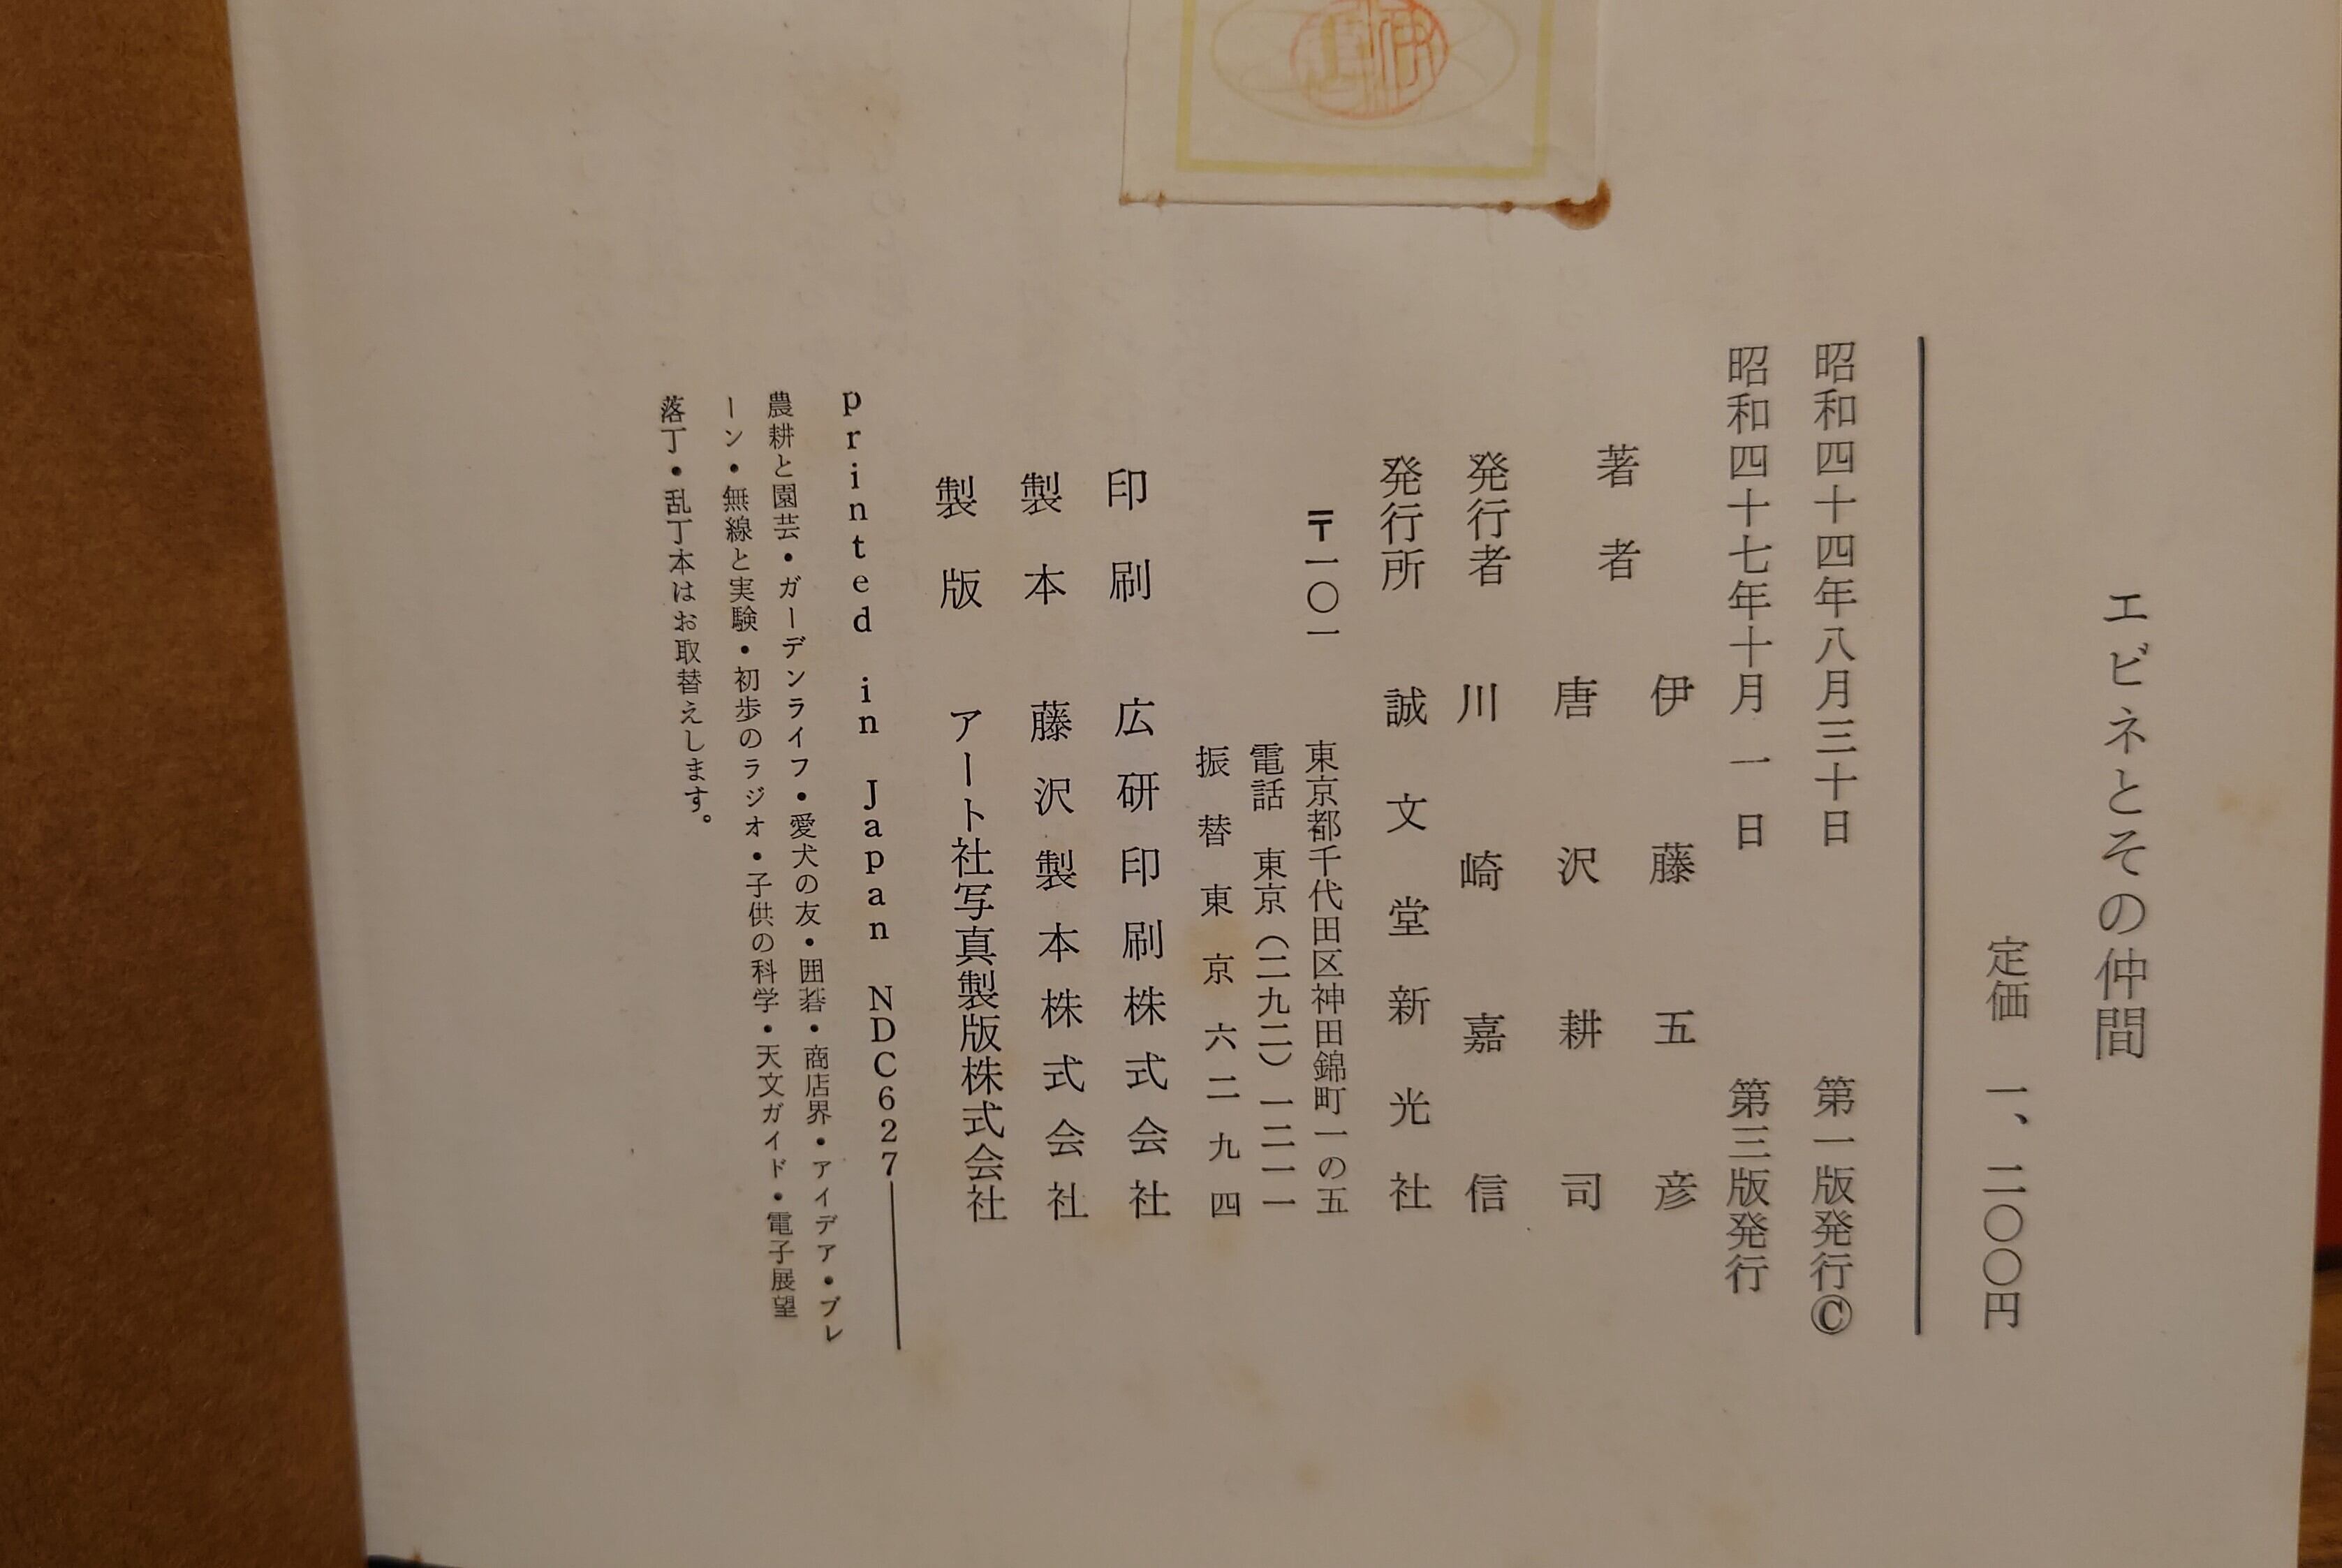 エビネとその仲間
定価 一、二〇〇円
昭和四十四年八月三十日 第一版発行©
昭和四十七年十月一日 第三版発行
著者 伊藤五彦
唐沢耕司
発行者 川崎嘉信
発行所 誠文堂新光社
〒一〇一 東京都千代田区神田錦町一の五
電話 東京(二九二)一二一一
振替東京六二九四
印刷 広研印刷株式会社
製本 藤沢製本株式会社
製版 アート社写真製版株式会社
printed in Japan NDC627
農耕と園芸・ガーデンライフ・愛犬の友・囲碁・商店界・アイデア・ブレ
ーン・無線と実験・初歩のラジオ・子供の科学・天文ガイド・電子展望
落丁・乱丁本はお取替えします。